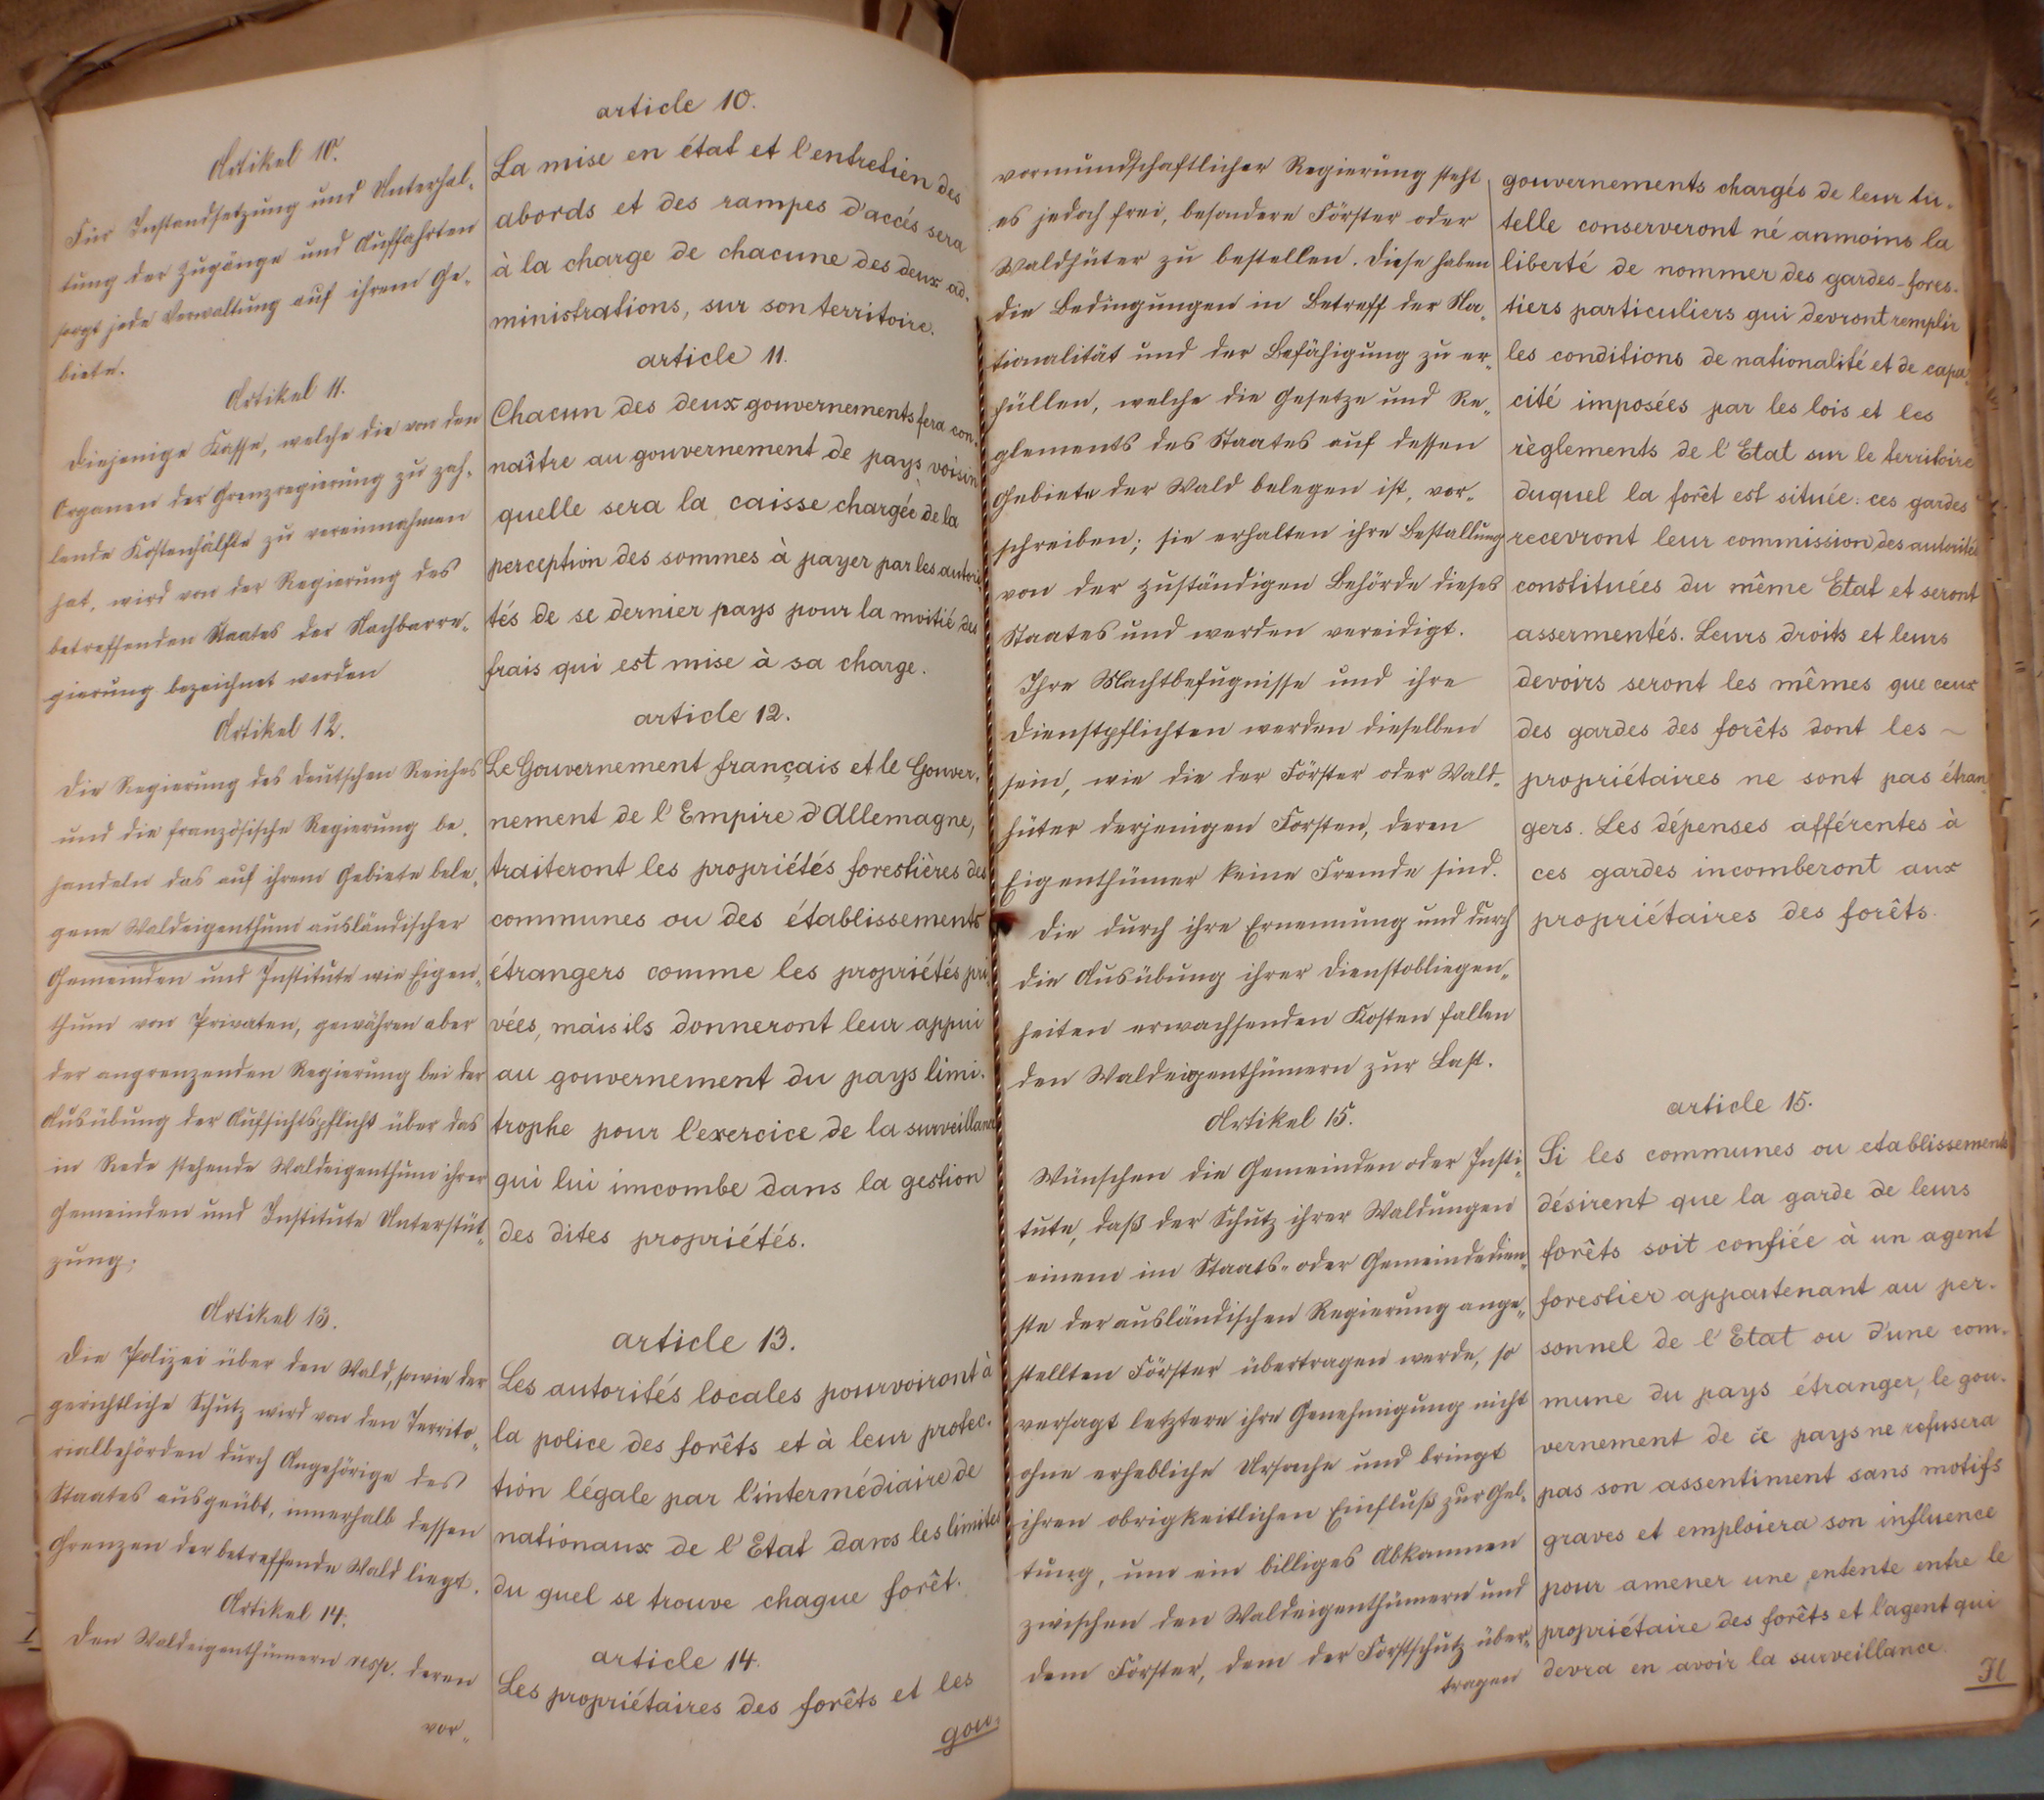 Artikel 10.
Für Instandsetzung und Unterhal-
tung der Zugänge und Auffahrten
sorgt jede Verwaltung auf ihrem Ge-
biete.
Artikel 11.
Diejenige Kasse, welche die von den
Organen der Grenzregierung zu zah-
lende Kostenhälfte zu vereinnahmen
hat, wird von der Regierung des
betreffenden Staates der Nachbarre-
gierung bezeichnet werden
Artikel 12.
Die Regierung des deutschen Reiches
und die französische Regierung be-
handeln das auf ihrem Gebiete bele-
gene Waldeigenthum ausländischer
Gemeinden und Institute wie Eigen-
thum von Privaten, gewähren aber
der angrenzenden Regierung bei der
Ausübung der Aufsichtspflicht über das
in Rede stehende Waldeigenthum ihrer
Gemeinden und Institute Unterstüt-
zung.
Artikel 13.
Die Polizei über den Wald, sowie der
gerichtliche Schutz wird von den Territo-
rialbehörden durch Angehörige des
Staates ausgeübt, innerhalb dessen
Grenzen der betreffende Wald liegt.
Artikel 14.
Den Waldeigenthümern resp. deren
vor-
article 10.
La mise en état et l'entretien des
abords et des rampes d'accés sera
à la charge de chacune des deux ad-
ministrations, sur son territoire.
article 11.
Chacun des deux gouvernements fera con-
naître au gouvernement de pays voisin
quelle sera la caisse chargée de la
perception des sommes à payer par les autori-
tés de se dernier pays pour la moitié des
frais qui est mise à sa charge.
article 12.
Le Gouvernement français et le Gouver-
nement de l'Empire d'Allemagne,
traiteront les propriétés forestières des
communes ou des établissements
étrangers comme les propriétés pri-
vées, mais ils donneront leur appui
au gouvernement du pays limi-
trophe pour l'exercice de la surveillance
qui lui imcombe dans la gestion
des dites propriétés.
article 13.
Les autorités locales pourvoiront à
la police des forêts et à leur protec-
tion légale par l'intermédiaire de
nationaux de l'Etat dans les limites
du quel se trouve chaque forêt.
article 14.
Les propriétaires des forêts et les
gou-
vormundschaftlicher Regierung steht
es jedoch frei, besondere Förster oder
Waldhüter zu bestellen. Diese haben
die Bedingungen in Betreff der Na-
tionalität und der Befähigung zu er-
füllen, welche die Gesetze und Re-
glements des Staates auf dessen
Gebiete der Wald belegen ist, vor-
schreiben; sie erhalten ihre Bestallung
von der zuständigen Behörde dieses
Staates und werden vereidigt.
Ihre Machtbefugnisse und ihre
Dienstpflichten werden dieselben
sein, wie die der Förster oder Wald-
hüter derjenigen Forsten, deren
Eigenthümer keine Fremde sind.
Die durch ihre Ernennung und durch
die Ausübung ihrer Dienstobliegen-
heiten erwachsenden Kosten fallen
den Waldeigenthümern zur Last.
Artikel 15.
Wünschen die Gemeinden oder Insti-
tute, daß der Schutz ihrer Waldungen
einem im Staats- oder Gemeindedien-
ste der ausländischen Regierung ange-
stellten Förster übertragen werde, so
versagt letztere ihre Genehmigung nicht
ohne erhebliche Ursache und bringt
ihren obrigkeitlichen Einfluß zur Gel-
tung, um ein billiges Abkommen
zwischen den Waldeigenthümern und
dem Förster, dem der Forstschutz über-
tragen
gouvernements chargés de leur tu-
telle conserveront né anmoins la
liberté de nommer des gardes-fores-
tiers particuliers qui devront remplir
les conditions de nationalité et de capa-
cité imposées par les lois et les
règlements de l'Etat sur le territoire
duquel la forêt est située: ces gardes
recevront leur commission des autorités
constituées du même Etat et seront
assermentés. Leurs droits et leurs
devoirs seront les mêmes que ceux
des gardes des forêts dont les ~
propriétaires ne sont pas étran-
gers. Les dépenses afférentes à
ces gardes incomberont aux
propriétaires des forêts.
article 15.
Si les communes ou etablissements
désirent que la garde de leurs
forêts soit confiée à un agent
forestier appartenant au per-
sonnel de l'Etat ou d'une com-
mune du pays étranger, le gou-
vernement de ce pays ne refusera
pas son assentiment sans motifs
graves et emploiera son influence
pour amener une entente entre le
propriétaire des forêts et l'agent qui
devra en avoir la surveillance.